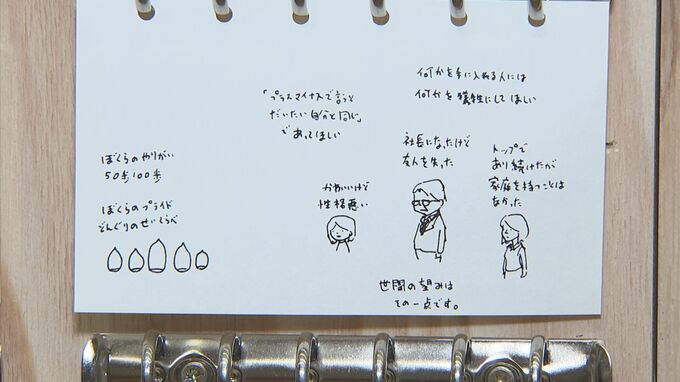 ぼくらのやりがい
50歩100歩
ぼくらのプライド
どんぐりのせいくらべ
「プラスマイナスで言うと
だいたい自分と同じ」
であってほしい
何かを手に入れる人には
何かを犠牲にしてほしい
かわいいけど
性格悪い
社長になったけど
友人を失った
トップで
あり続けたが
家庭を持つことは
なかった
世間の望みは
その一点です。